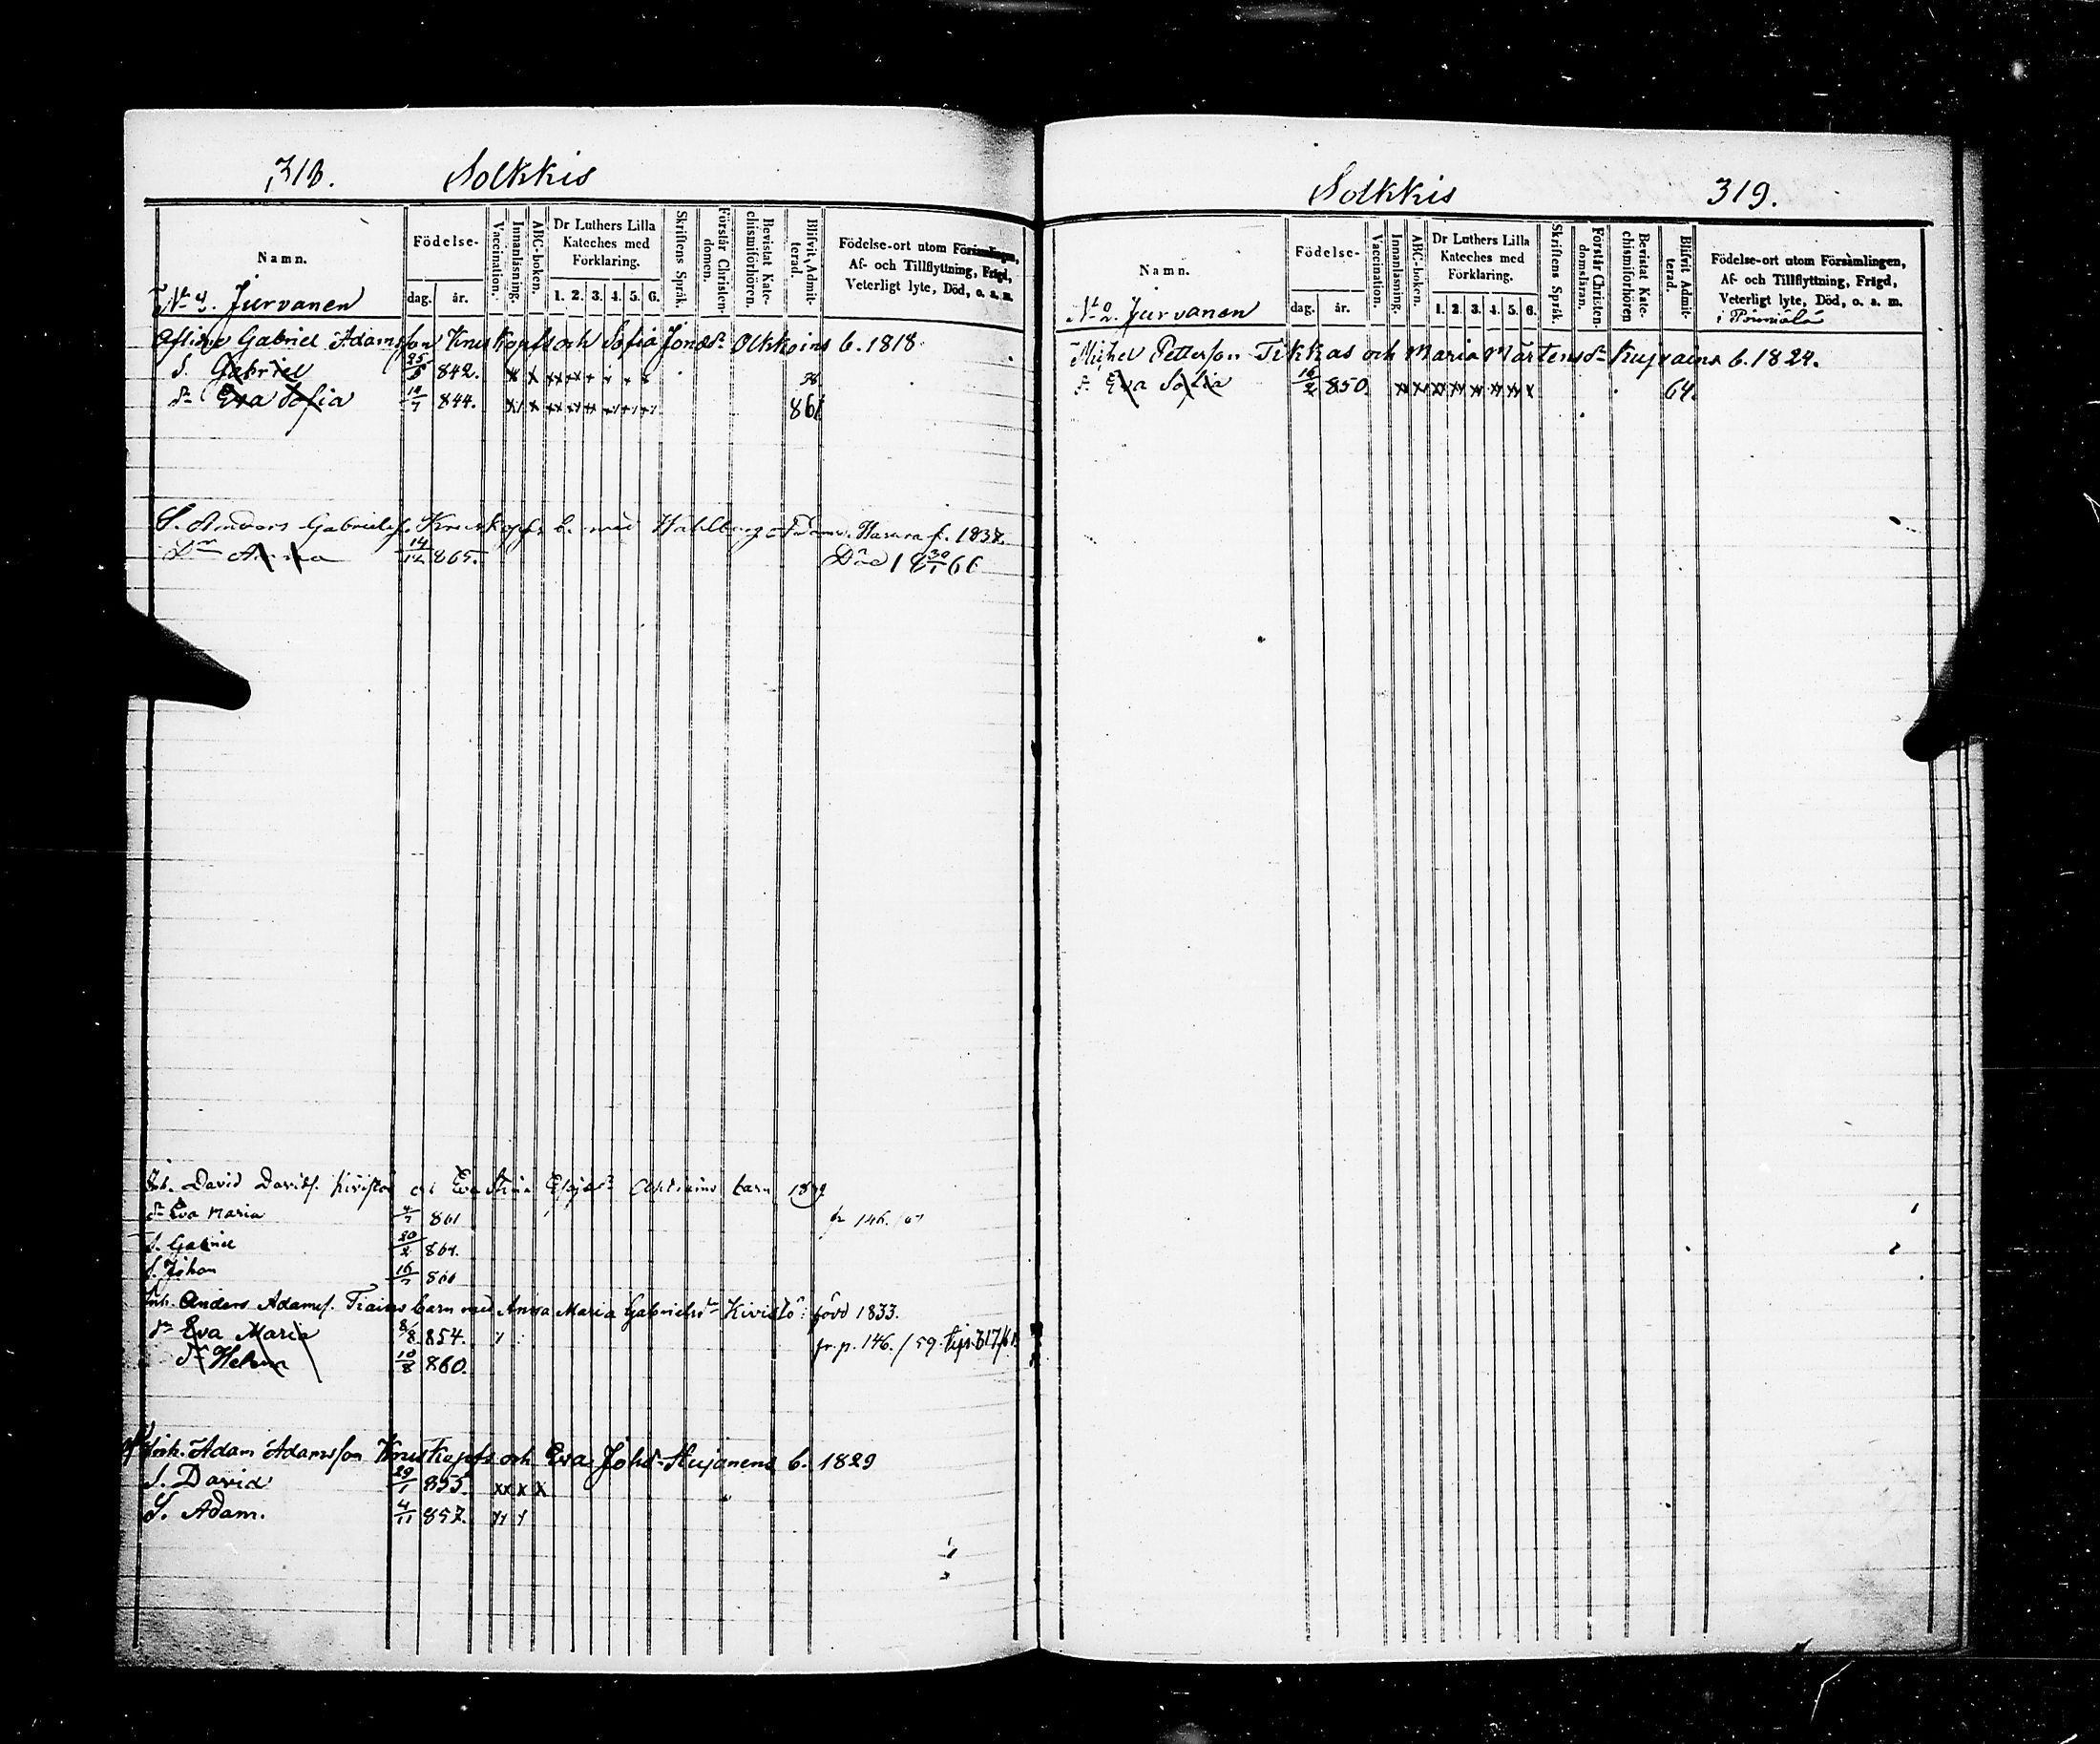 318. Solkkis
Namn.
Födelse-
dag. år.
Vaccination.
Innanläsning.
ABC-boken.
Dr Luthers Lilla Kateches med Förklaring.
1. 2. 3. 4. 5. 6.
Skriftens Språk.
Förstår Christendomen.
Bevistat Katechismiförhören.
Blifvit Admitterad.
Födelse-ort utom Församlingen,
Af- och Tillflyttning, Frägd,
Veterligt lyte, Död, o. s. m.
Jurvanen
Gabriel Adamsson Kruskopfs och Sofia Jonasdr Olkkoins b. 1818
S. Gabriel 25/5 842. x x xx xx + + + +
dr Eva Sofia 844. 861
S. Anders Gabrielss. Kruskopfs b. med f. 1837.
dr Anna 14/12 865. Död 18 30/1 66
Inh. David Davidss. Kivistö Eva Stina barn
dr Eva Maria 4/7 861 fr 146.
S. Gabriel 20/2 864.
S. Johan 16/7 866
Inh. Anders Adamss. barn med Anna Maria Gabrielsdr Kivistö: född 1833.
dr Eva Maria 8/8 854. fr. p. 146. / 59.
dr Helena 10/8 860.
Inh. Adam Adamsson Kruskopfs och Eva Johsdr b. 1829
S. David 29/1 855. xx x x
S. Adam. 4/11 857.
Solkkis 319.
Namn.
Födelse-
dag. år.
Vaccination.
Innanläsning.
ABC-boken.
Dr Luthers Lilla Kateches med Förklaring.
1. 2. 3. 4. 5. 6.
Skriftens Språk.
Förstår Christendomsläran.
Bevistat Katechismiförhören
Blifvit Admitterad.
Födelse-ort utom Församlingen,
Af- och Tillflyttning, Frägd,
Veterligt lyte, Död, o. s. m.
No 2. Jurvanen
Michel Petterson Tikkas och Maria Mårtensdr b. 1824.
dr Eva Sofia 16/2 850. xx xx xx xx xx xx xx x 64.